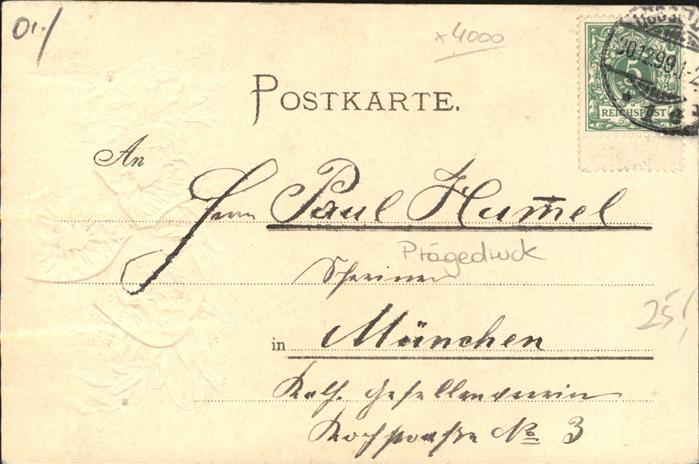 01./
x 4000
30.12.99.
5
REICHSPOST
POSTKARTE.
An
Herrn Paul Hum̅el
Prägedruck
Schreiner
25/
in München
Kath. Gesellenverein
Hochstraße No. 3